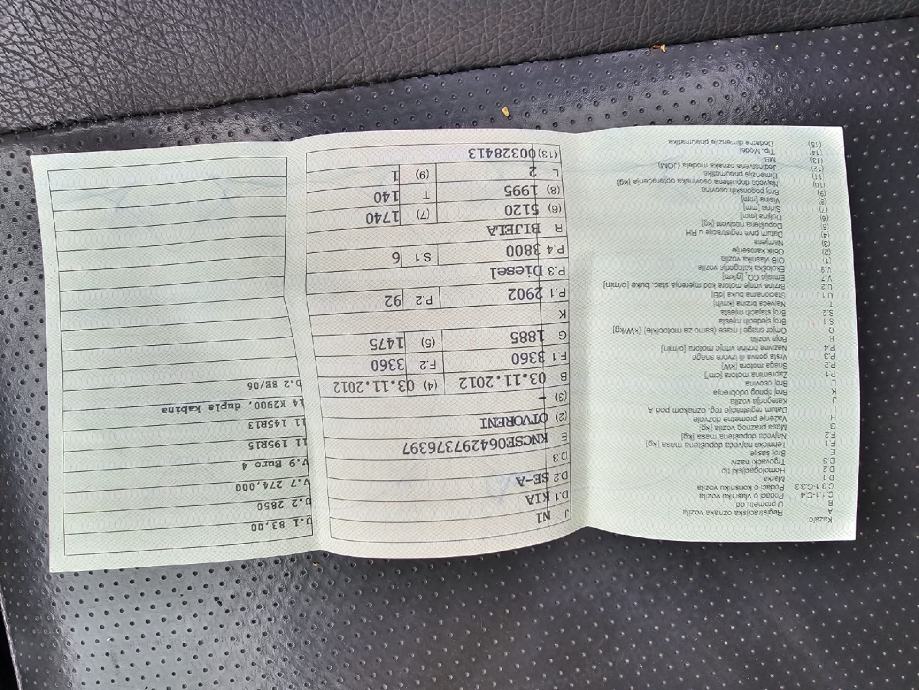 Kazalo:
A Registracijska oznaka vozila
B U prometu od
C.1.1-C.4 Podaci o vlasniku vozila
C.3.1-C.3.3 Podaci o korisniku vozila
D.1 Marka
D.2 Homologacijski tip
D.3 Trgovački naziv
E Broj šasije
F.1 Tehnički najveća dopuštena masa [kg]
F.2 Najveća dopuštena masa [kg]
G Masa praznog vozila [kg]
H Važenje prometne dozvole
Datum registracije reg. oznakom pod A
J Kategorija vozila
K Broj tipnog odobrenja
L Broj osovina
P.1 Zapremina motora [cm³]
P.2 Snaga motora [kW]
P.3 Vrsta goriva ili izvora snage
P.4 Nazivne brzine vrtnje motora [o/min]
R Boja vozila
Q Omjer snage i mase (samo za motocikle) [kW/kg]
S.1 Broj sjedećih mjesta
S.2 Broj stajaćih mjesta
T Najveća brzina [km/h]
U.1 Stacionarna buka [dB]
U.2 Brzina vrtnje motora kod mjerenja stac. buke [o/min]
V.7 Emisija CO₂ [g/km]
V.9 Ekološka kategorija vozila
(1) OIB vlasnika vozila
(2) Oblik karoserije
(3) Namjena
(4) Datum prve registracije u RH
(5) Dopuštena nosivost [kg]
(6) Duljina [mm]
(7) Širina [mm]
(8) Visina [mm]
(9) Broj pogonskih osovina
(10) Najveća dopuštena osovinska opterećenja [kg]
(11) Dimenzije pneumatika
(12) Jedinstvena oznaka modela (JOM)
(13) MB
(14) Tip, Model
(15) Dodatne dimenzije pneumatika
J N1
D.1 KIA
D.2 SE-A
D.3
E KNCSE064297376397
(2) OTVORENI
(3) -
B 03.11.2012 (4) 03.11.2012
F.1 3360 F.2 3360
G 1885 (5) 1475
K
P.1 2902 P.2 92
P.3 Diesel
P.4 3800 S.1 6
R BIJELA
(6) 5120 (7) 1740
(8) 1995 T 140
L 2 (9) 1
(13) 00328413
U.1 83,00
U.2 2850
V.7 274,000
V.9 Euro 4
11 195R15
11 145R13
14 K2900, dupla kabina
b.2 8E/06